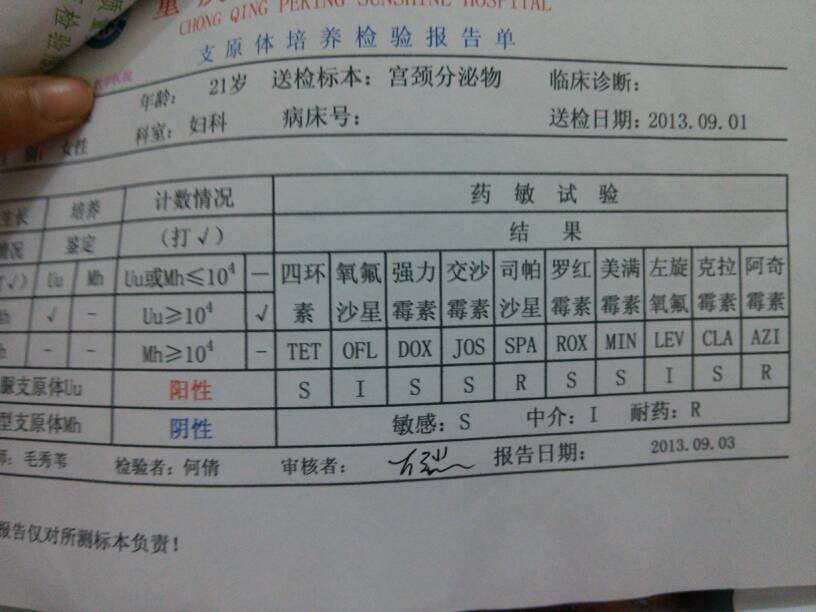 CHONG QING PEKING SUNSHINE HOSPITAL
支原体培养检验报告单
年龄: 21岁 送检标本: 宫颈分泌物 临床诊断:
女性 科室: 妇科 病床号: 送检日期: 2013.09.01
生长 培养 计数情况 药敏试验
情况 鉴定 (打√) 结果
Uu Mh Uu或Mh≤10⁴ — 四环素 氧氟沙星 强力霉素 交沙霉素 司帕沙星 罗红霉素 美满霉素 左旋氧氟 克拉霉素 阿奇霉素
√ - Uu≥10⁴ √
- - Mh≥10⁴ - TET OFL DOX JOS SPA ROX MIN LEV CLA AZI
脲支原体Uu 阳性 S I S S R S S I S R
型支原体Mh 阴性 敏感: S 中介: I 耐药: R
师: 毛秀苇 检验者: 何倩 审核者: 报告日期: 2013.09.03
报告仅对所测标本负责!